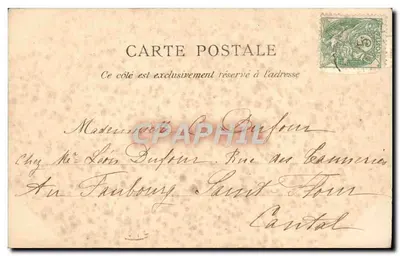 CARTE POSTALE
Ce côté est exclusivement réservé à l'adresse
Mademoiselle C. Dufour
Chez Mr Léon Dufour Rue des Tanneries
Au Faubourg Saint Flour
Cantal
CPAPHIL